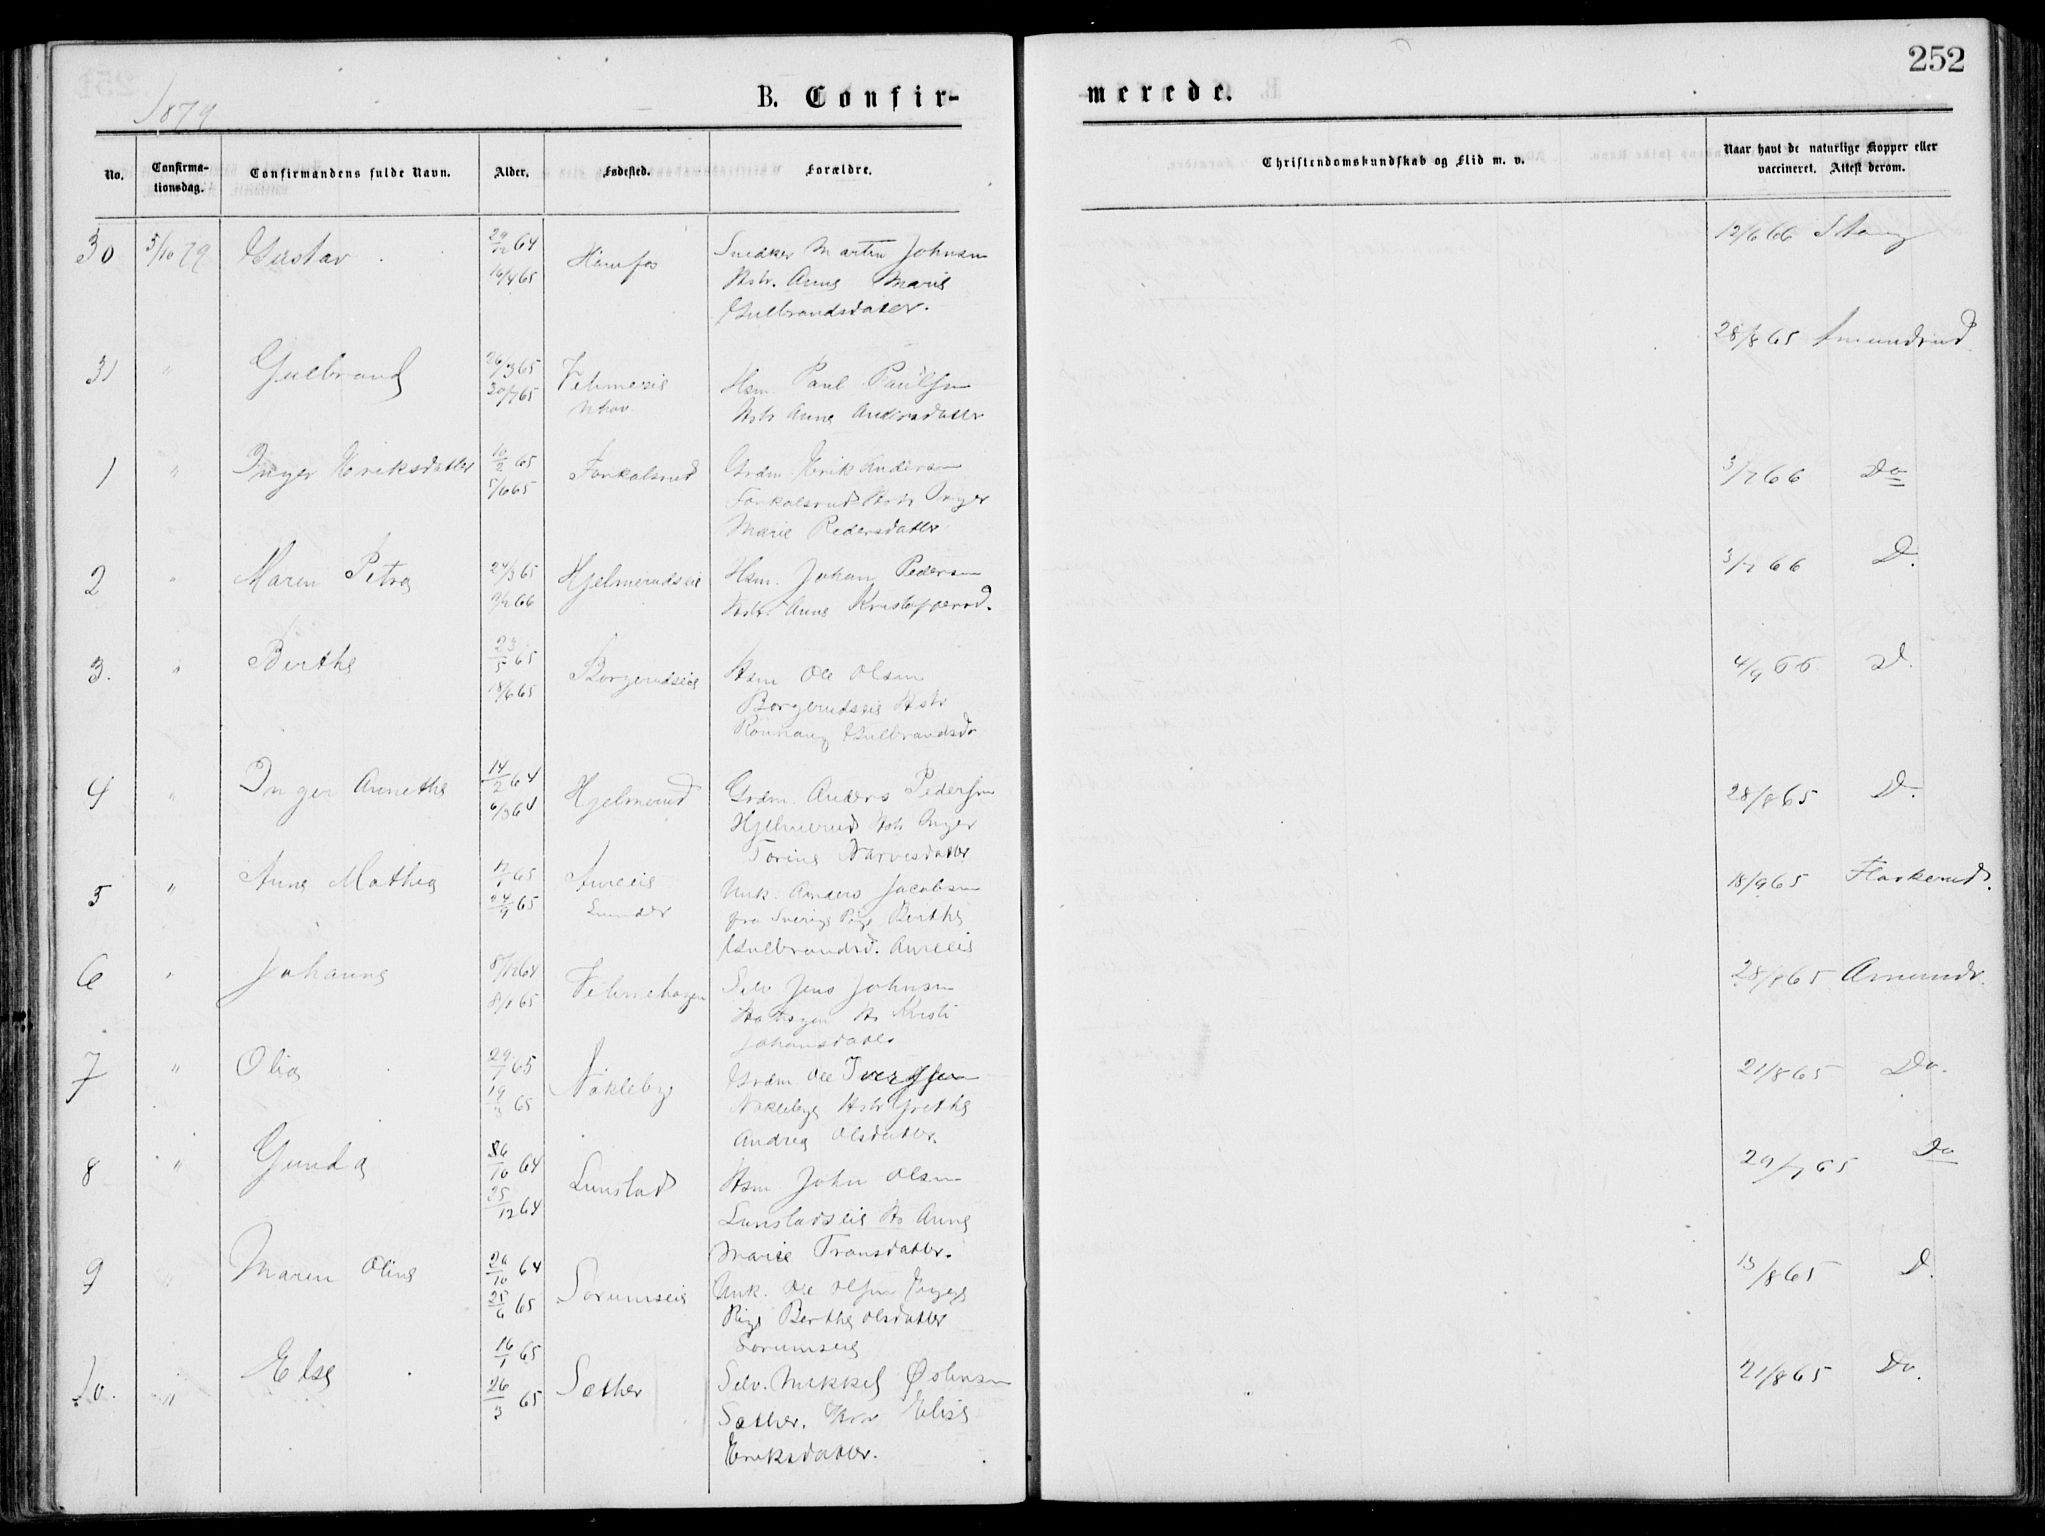 252
1879
B. Confir-
merede.
No.
Confirma-
tionsdag.
Confirmandens fulde Navn.
Alder.
Fødested.
Forældre.
Christendomskundskab og Flid m. v.
Naar havt de naturlige Kopper eller
vaccineret. Attest derom.
30 5/10 79 Gustav 29/12 64 Hønefos Snedker Martin Johnsen
16/4 65 Hstr. Anne Marie
Gulbrandsdatter.
12/6 66 Stang
31 " Gulbrand 26/3 65 Hsm. Paul Paulsen
30/7 65 Hstr Anne Andersdatter
28/8 65 Amundrud
1 " Inger Eriksdatter 10/2 65 Grdm. Erik Andersen
5/6 65 Hstr Inger
Marie Pedersdatter
3/7 66 Do
2 " Maren Petra 24/3 65 Hjelmerudseie Hsm. Johan Pedersen
Hstr. Anne Kristoffersd.
3/7 66 D.
3. " Berthe 23/5 65 Borgerudseie Hsm Ole Olsen
18/6 65 Borgerudseie Hstr
Rønnaug Gulbrandsd.
4/9 66 D.
4 " Inger Annethe 14/2 64 Hjelmerud Grdm. Anders Pedersen
6/3 64 Hjelmerud Hstr Inger
Torine Narvesdatter
28/8 65 D.
5 " Anne Mathea 12/1 65 Aureeie Unk. Anders Jacobsen
24/9 65 Lunder fra Sverige Pige Berthe
Gulbrandsd. Aureeie
18/9 65 Flaskerud.
6 " Johanne 8/12 64 Selv. Jens Johnsen
8/1 65 Hs Kristi
Johansdatter
28/8 65 Amundr.
7 " Olia 29/1 65 Nøkleby Grdm. Ole Iversen
19/3 65 Nøkleby Hstr Grethe
Andrea Olsdatter.
21/8 65 Do.
8 " Gunda 26/10 64 Lunstad Hsm. John Olsen
25/12 64 Lunstadseie Hs Anne
Marie Transdatter.
29/7 65 Do
9 " Maren Oline 26/10 64 Sørumseie Unk. Ole Olsen
25/6 65 Pige Berthe Olsdatter
Sørumseie
13/8 65 D.
10. " Else 16/1 65 Sæther Selv. Mikkel Østensen
26/3 65 Sæther. Elise
Eriksdatter.
21/8 65 Do.